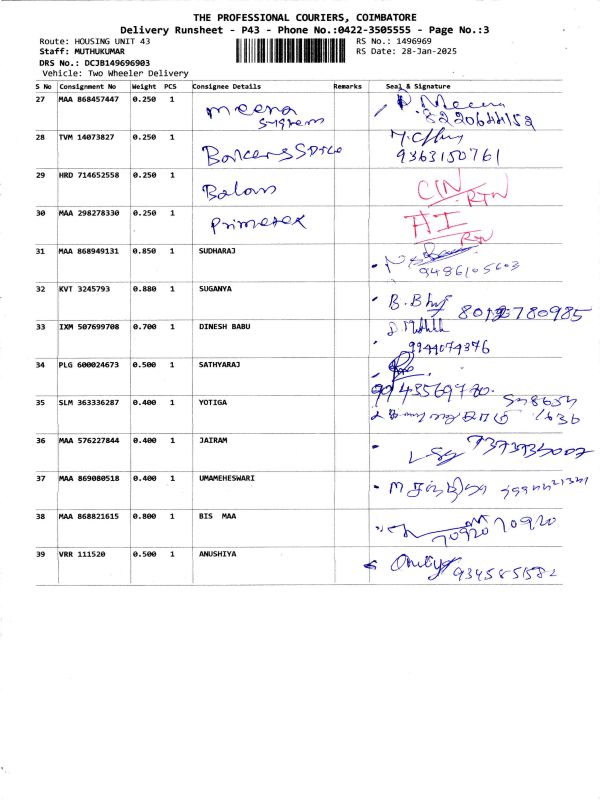 THE PROFESSIONAL COURIERS, COIMBATORE
Delivery Runsheet - P43 - Phone No.:0422-3505555 - Page No.:3
Route: HOUSING UNIT 43 RS No.: 1496969
Staff: MUTHUKUMAR RS Date: 28-Jan-2025
DRS No.: DCJB149696903
Vehicle: Two Wheeler Delivery
S No Consignment No Weight PCS Consignee Details Remarks Seal & Signature
27 MAA 868457447 0.250 1 meena system P Meena
8220644152
28 TVM 14073827 0.250 1
9363150761
29 HRD 714652558 0.250 1 Balan CIN RTN
30 MAA 298278330 0.250 1 primetex HI RTN
31 MAA 868949131 0.850 1 SUDHARAJ
9486105603
32 KVT 3245793 0.880 1 SUGANYA B.
33 IXM 507699708 0.700 1 DINESH BABU
9944074376
34 PLG 600024673 0.500 1 SATHYARAJ
35 SLM 363336287 0.400 1 YOTIGA
36 MAA 576227844 0.400 1 JAIRAM
37 MAA 869080518 0.400 1 UMAMEHESWARI M
38 MAA 868821615 0.800 1 BIS MAA
70920 70920
39 VRR 111520 0.500 1 ANUSHIYA